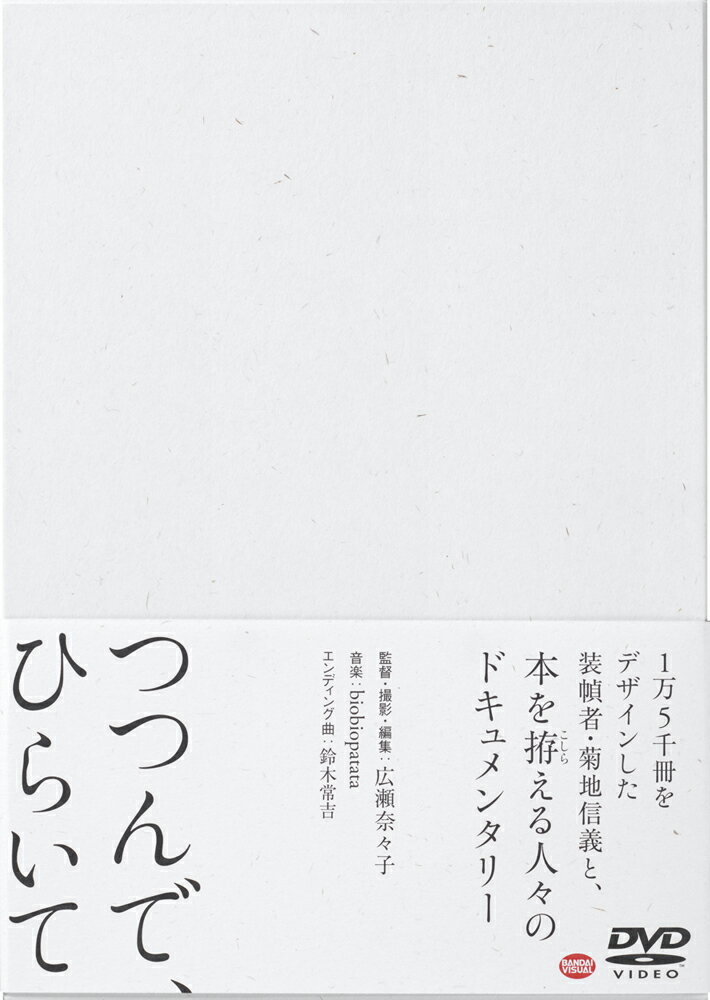 1万5千冊を
デザインした
装幀者・菊地信義と、
本を拵える人々の
こしら
ドキュメンタリー
監督・撮影・編集：広瀬奈々子
音楽：biobiopatata
エンディング曲：鈴木常吉
つつんで、
ひらいて
BANDAI
VISUAL
DVD
VIDEO
™